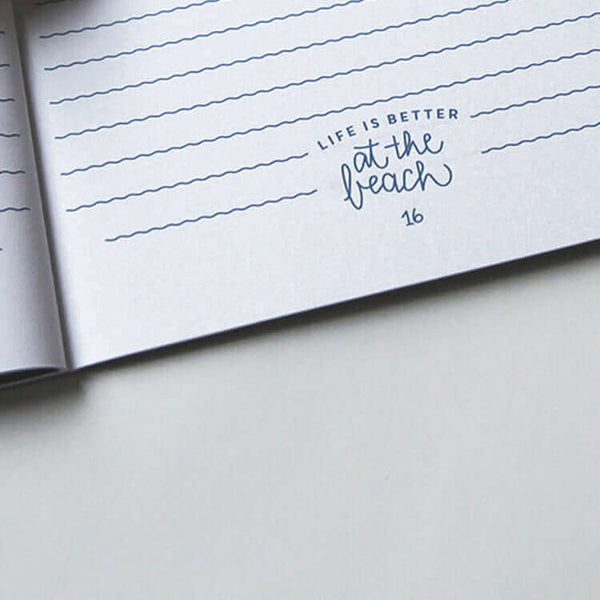 LIFE IS BETTER
at the
beach
16